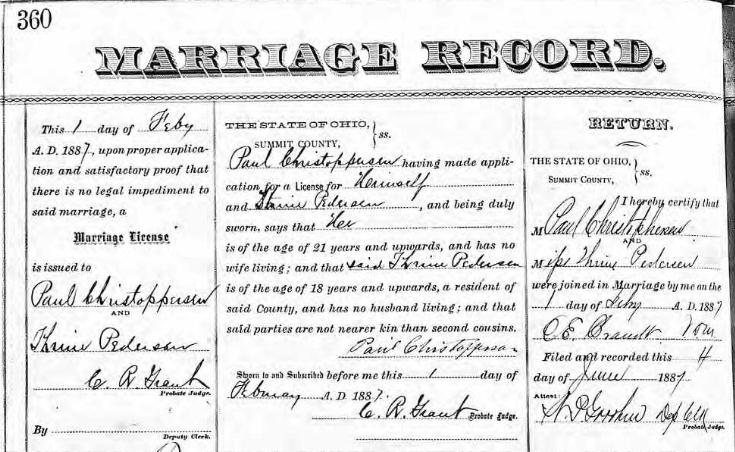 360
MARRIAGE RECORD.
This 1 day of Feby
A. D. 1887, upon proper applica-
tion and satisfactory proof that
there is no legal impediment to
said marriage, a
Marriage License
is issued to
Paul Christoppersen
AND
Thrine Pedersen
C. R. Grant
Probate Judge.
By
Deputy Clerk.
THE STATE OF OHIO,
SUMMIT COUNTY, } ss.
Paul Christoppersen having made appli-
cation for a License for Heimself
and Thrine Pedersen, and being duly
sworn, says that Her
is of the age of 21 years and upwards, and has no
wife living; and that said Thrine Pedersen
is of the age of 18 years and upwards, a resident of
said County, and has no husband living; and that
said parties are not nearer kin than second cousins.
Paul Christoppersen
Sworn to and Subscribed before me this 1 day of
Febuary A. D. 1887.
C. R. Grant Probate Judge.
RETURN.
THE STATE OF OHIO,
SUMMIT COUNTY, } ss.
I hereby certify that
M Paul Christophersen
AND
Miss Thrine Pedersen
were joined in Marriage by me on the
1 day of Feby A. D. 1887
C. E. Brandt
Filed and recorded this 4
day of June 1887.
Attest:
Dep Clk
Probate Judge.